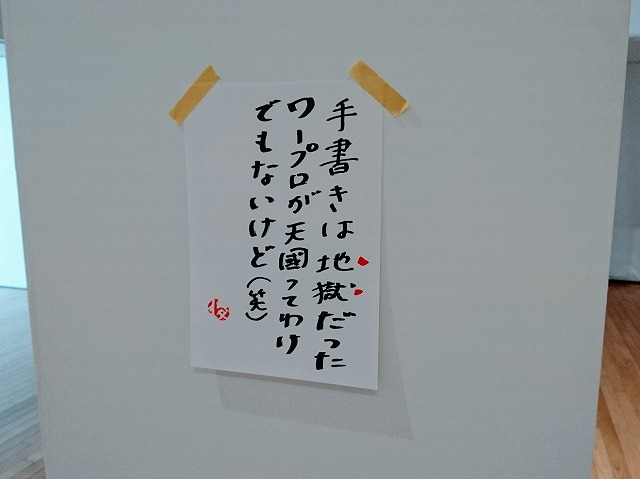 手書きは地獄だった
ワープロが天國ってわけ
でもないけど(笑)